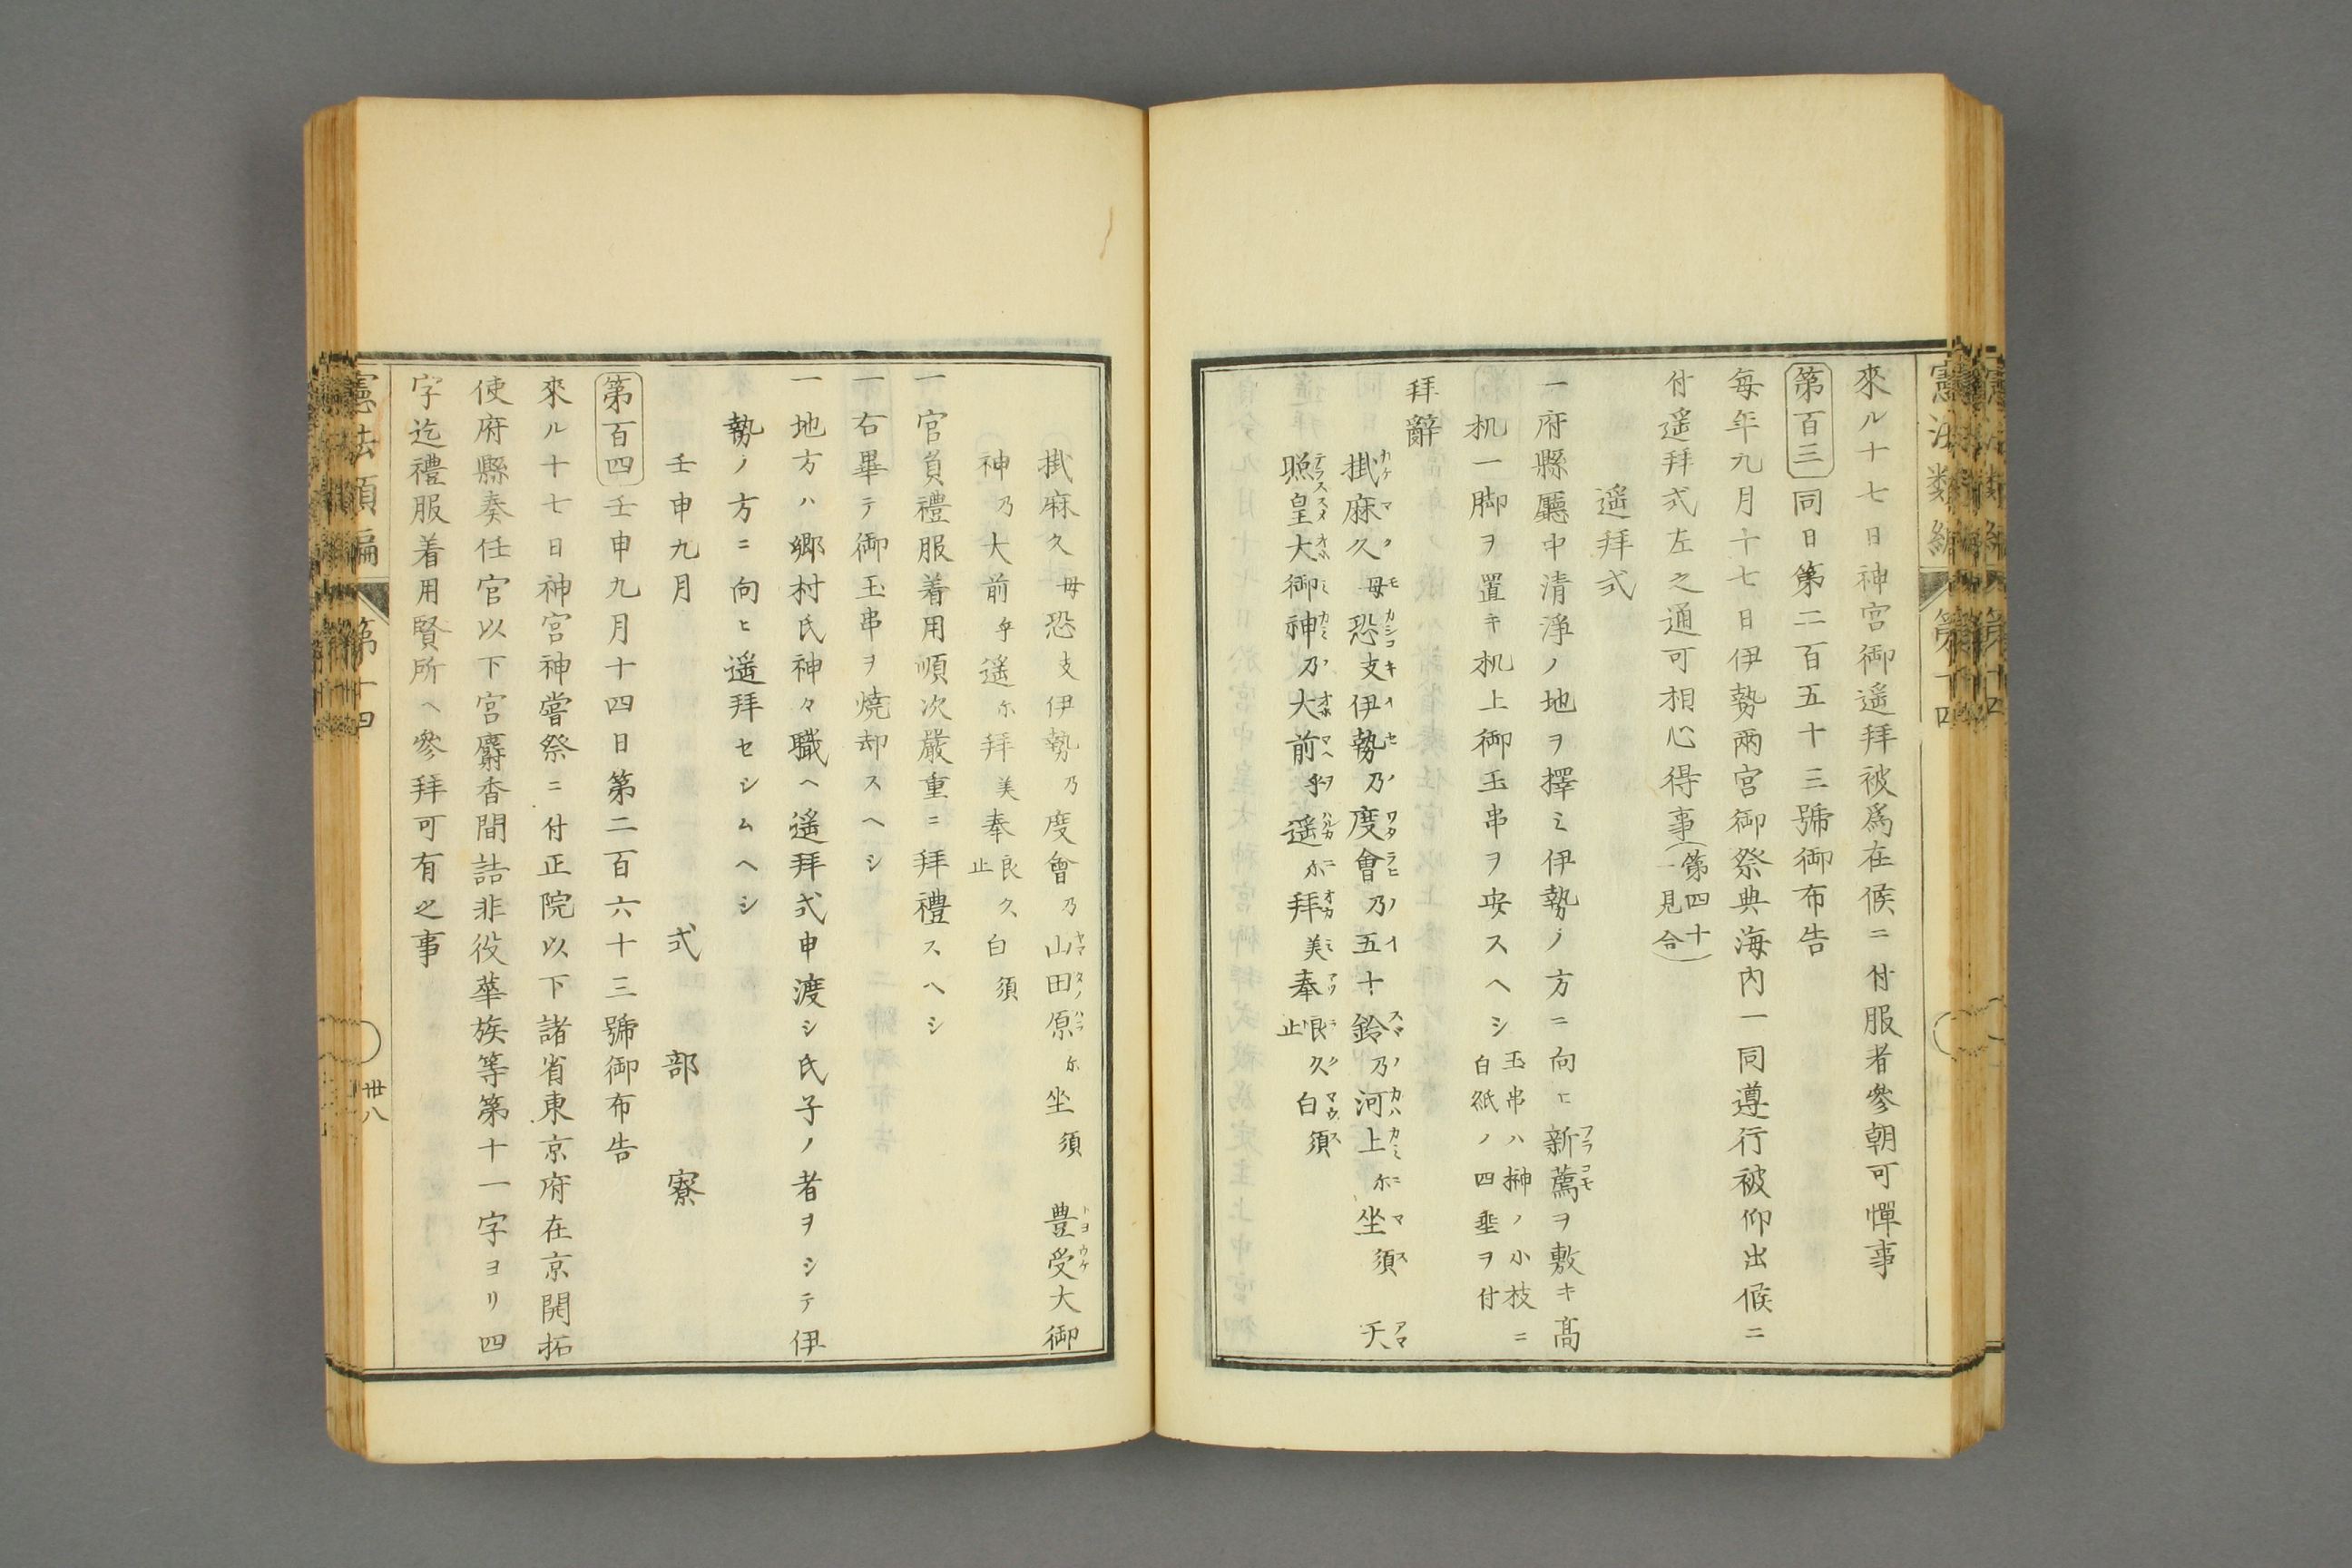 來ル十七日神宮御遥拜被爲在候ニ付服者參朝可憚事
第百三 同日第二百五十三號御布告
每年九月十七日伊勢兩宮御祭典海內一同遵行被仰出候ニ
付遥拜式左之通可相心得事(第四十一見合)
遥拜式
一府縣廳中清淨ノ地ヲ擇ミ伊勢ノ方ニ向ヒ新薦ヲ敷キ高
机一脚ヲ置キ机上御玉串ヲ安スヘシ 玉串ハ榊ノ小枝ニ白紙ノ四垂ヲ付
拜辭
掛麻久毋恐支伊勢乃度會乃五十鈴乃河上尓坐須 天
照皇大御神乃大前乎遥尓拜美奉良久止白須
掛麻久毋恐支伊勢乃度會乃山田原尓坐須 豊受大御
神乃大前乎遥尓拜美奉良久止白須
一官負禮服着用順次嚴重ニ拜禮スヘシ
一右畢テ御玉串ヲ燒却スヘシ
一地方ハ鄉村氏神々職ヘ遥拜式申渡シ氏子ノ者ヲシテ伊
勢ノ方ニ向ヒ遥拜セシムヘシ
壬申九月 式部寮
第百四 壬申九月十四日第二百六十三號御布告
來ル十七日神宮神嘗祭ニ付正院以下諸省東京府在京開拓
使府縣奏任官以下宮麝香間詰非役華族等第十一字ヨリ四
字迄禮服着用賢所ヘ參拜可有之事
憲法類編 第十四
卅八